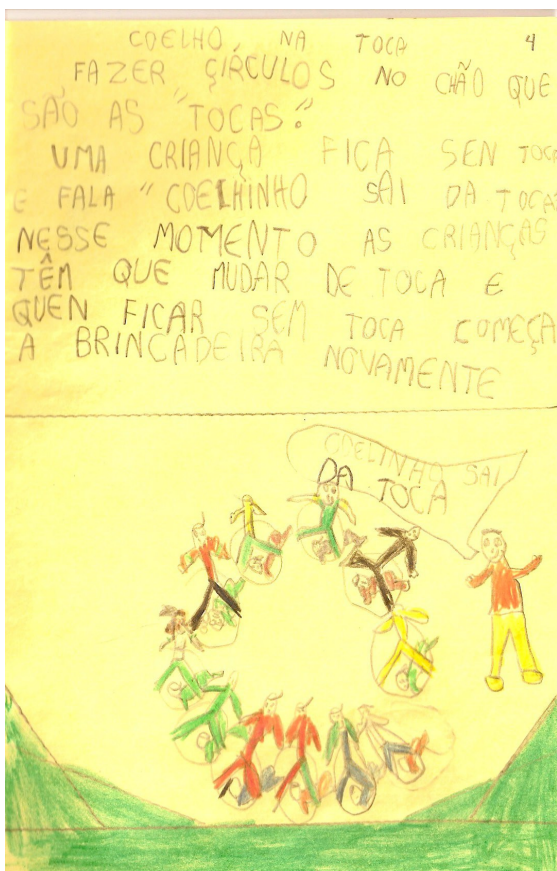 COELHO NA TOCA 4
FAZER CÍRCULOS NO CHÃO QUE
SÃO AS "TOCAS."
UMA CRIANÇA FICA SEN TOCA
E FALA "COELHINHO SAI DA TOCA"
NESSE MOMENTO AS CRIANÇAS
TÊM QUE MUDAR DE TOCA E
QUEN FICAR SEM TOCA COMEÇA
A BRINCADEIRA NOVAMENTE
COELINHO SAI
DA TOCA